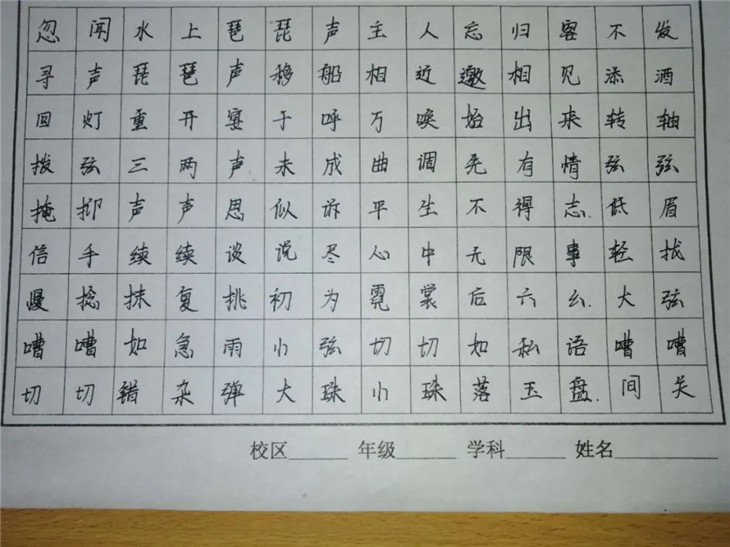 忽闻水上琵琶声主人忘归客不发
寻声琵琶声移船相近邀相见添酒
回灯重开宴于呼万唤始出来转轴
拨弦三两声未成曲调先有情弦弦
掩抑声声思似诉平生不得志.低眉
信手续续谈说尽心中无限事轻拢
慢捻抹复挑初为霓裳后六幺.大弦
嘈嘈如急雨小弦切切如私语嘈嘈
切切错杂弹大珠小珠落玉盘.间关
校区______ 年级______ 学科______ 姓名__________